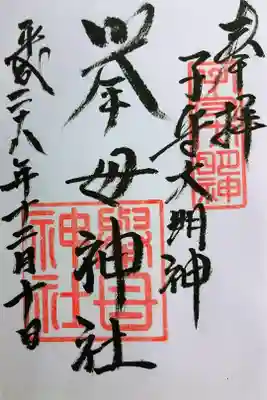 奉拝
子守大明神
挙母神社
平成二十八年十二月十日
擧母神社